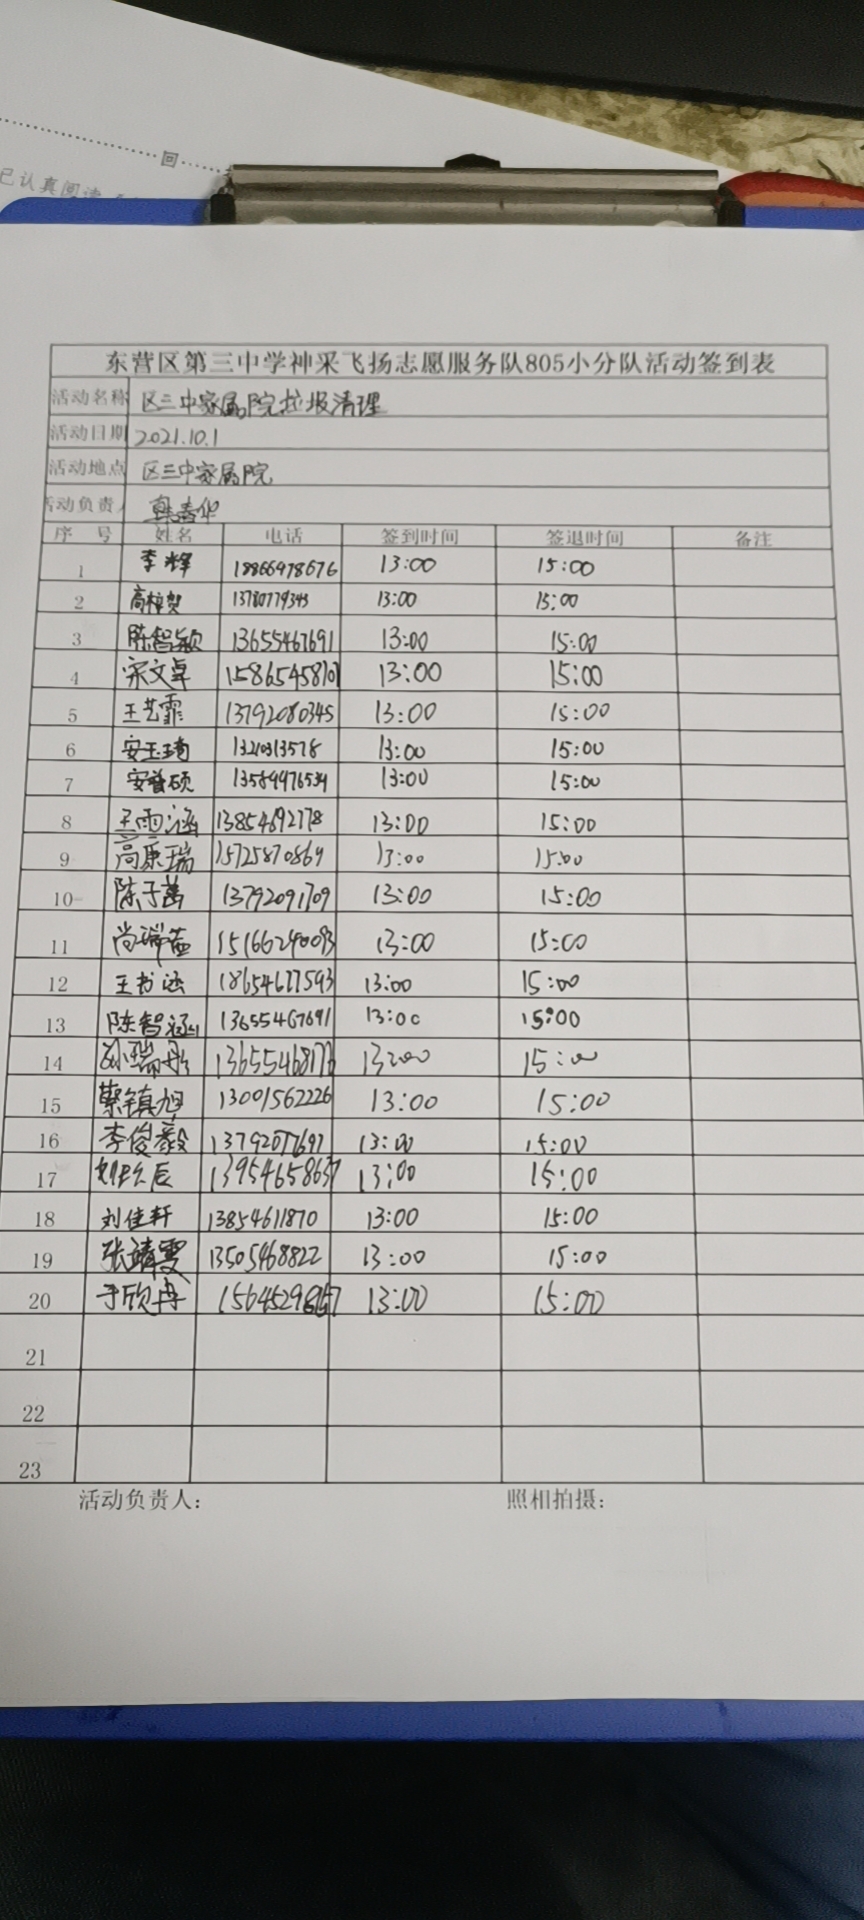 回
已认真阅读
东营区第三中学神采飞扬志愿服务队805小分队活动签到表
活动名称 区三中家属院垃圾清理
活动日期 2021.10.1
活动地点 区三中家属院
活动负责人 韩春华
序 号 姓名 电话 签到时间 签退时间 备注
1 李烨 18866978676 13:00 15:00
2 高梓贺 13780779343 13:00 15:00
3 陈智颖 13655467691 13:00 15:00
4 宋文卓 15865458707 13:00 15:00
5 王艺霏 13792080345 13:00 15:00
6 安玉琦 13:00 15:00
7 安普硕 13589476534 13:00 15:00
8 王雨涵 13854692778 13:00 15:00
9 高康瑞 15725870869 13:00 15:00
10 陈子萬 13792091709 13:00 15:00
11 尚瑞益 15166240093 13:00 15:00
12 王书涵 18654677593 13:00 15:00
13 陈智涵 13655467691 13:00 15:00
14 孙瑞彤 13:00 15:00
15 蔡镇旭 13001562226 13:00 15:00
16 李俊毅 13792077697 13:00 15:00
17 13954658637 13:00 15:00
18 刘佳轩 13854611870 13:00 15:00
19 张靖雯 13505468822 13:00 15:00
20 于欣冉 13:00 15:00
21
22
23
活动负责人: 照相拍摄: